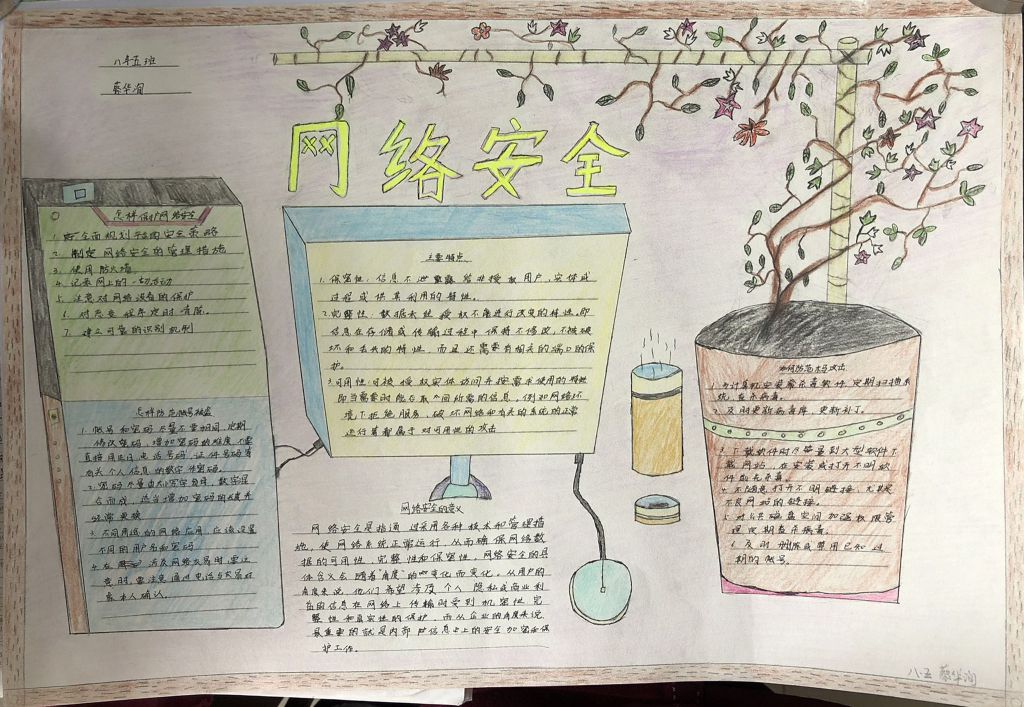 八年五班
蔡华洵
网络安全
怎样保护网络安全
1. 全面规划 安全策略
2. 制定网络安全的管理措施
3. 使用防火墙
4. 记录网上的一切活动
5. 注意对网络设备的保护
6. 程序定时清除。
7. 建立可靠的识别机制
怎样防范账号被盗
1. 账号和密码尽量不要相同,定期
修改密码,增加密码的难度,不要
直接用生日,电话号码,证件号码等
有关个人信息的数字作密码。
2. 密码尽量由大小写字母,数字混
合而成,适当增加密码的长度并
经常更换
3. 不同用途的网络应用,应该设置
不同的用户名和密码
4. 在涉及网络交易时,要注
意时,要注意通过电话与交易对
象本人确认。
主要特点
1. 保密性:信息不泄露给非授权用户,实体或
过程或供其利用的特性。
2. 完整性:数据未经授权不能进行改变的特性。即
信息在存储或传输过程中保持不修改,不被破
坏和丢失的特性,而且还需要有相关的端口的保
护。
3. 可用性:可被授权实体访问并按需求使用的特性
即当需要时能否存取所需的信息,例如网络环
境下拒绝服务,破坏网络和有关的系统的正常
运行等都属于对可用性的攻击
网络安全的意义
网络安全是指通过采用各种技术和管理措
施,使网络系统正常运行,从而确保网络数
据的可用性,完整性和保密性,网络安全的具
体含义会随着"角度"的变化而变化。从用户的
角度来说,他们希望涉及个人隐私或商业利
益的信息在网络上传输时受到机密性完
整性和真实性的保护,而从企业的角度来说
最重要的就是内部信息上的安全加密和保
护工作。
如何防范木马攻击
1. 为计算机安装杀毒软件,定期扫描系
统,查杀病毒。
2. 及时更新病毒库,更新补丁。
3. 下载软件时尽量到大型软件下
载网站,在安装或打开不明软
件前先杀毒。
4. 不随意打开不明链接,尤其是
不良网站的链接。
5. 对公共磁盘空间加强权限管
理定期查杀病毒。
6. 及时删除或禁用已知过
期的账号。
八.五 蔡华洵